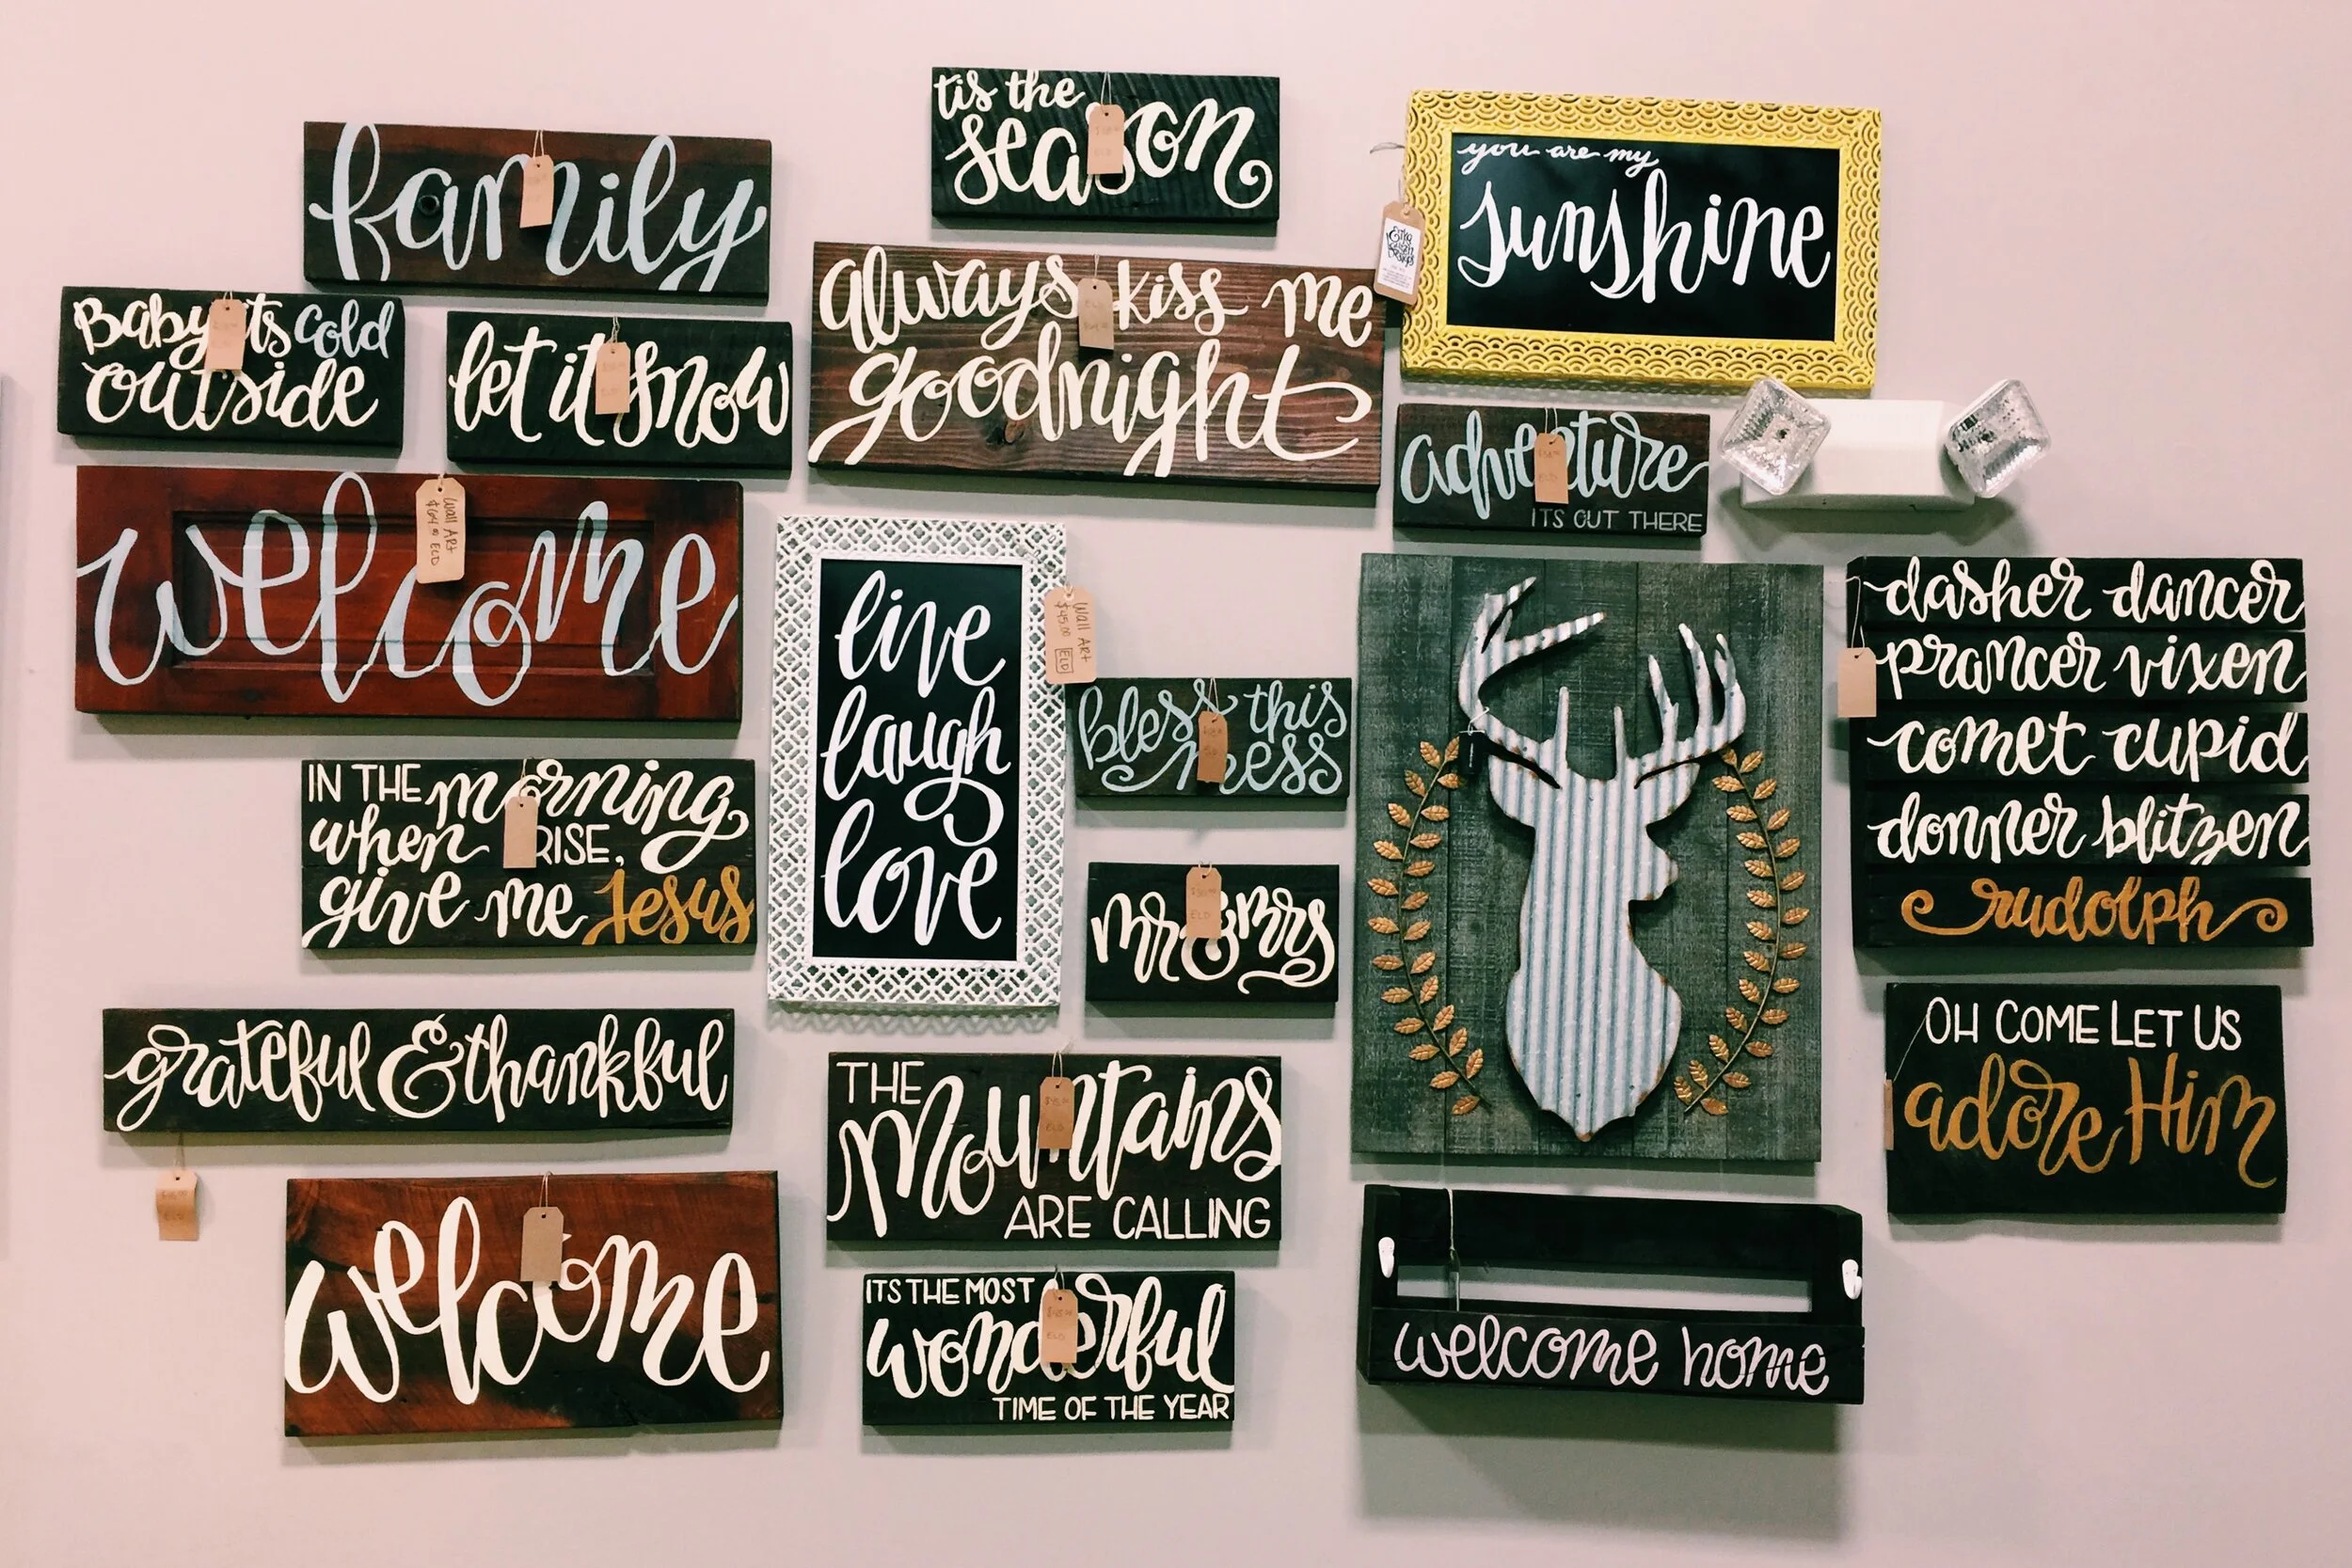 tis the
season
family
you are my
sunshine
always kiss me
goodnight
Baby its cold
outside
let it snow
adventure
ITS OUT THERE
welcome
Wall Art
$64.00 ELD
live
laugh
love
Wall Art
$45.00 ELD
bless this
mess
dasher dancer
prancer vixen
comet cupid
donner blitzen
rudolph
IN THE morning
when RISE,
give me Jesus
mr & mrs
grateful & thankful
THE
mountains
ARE CALLING
OH COME LET US
adore Him
welcome
ITS THE MOST
wonderful
TIME OF THE YEAR
welcome home